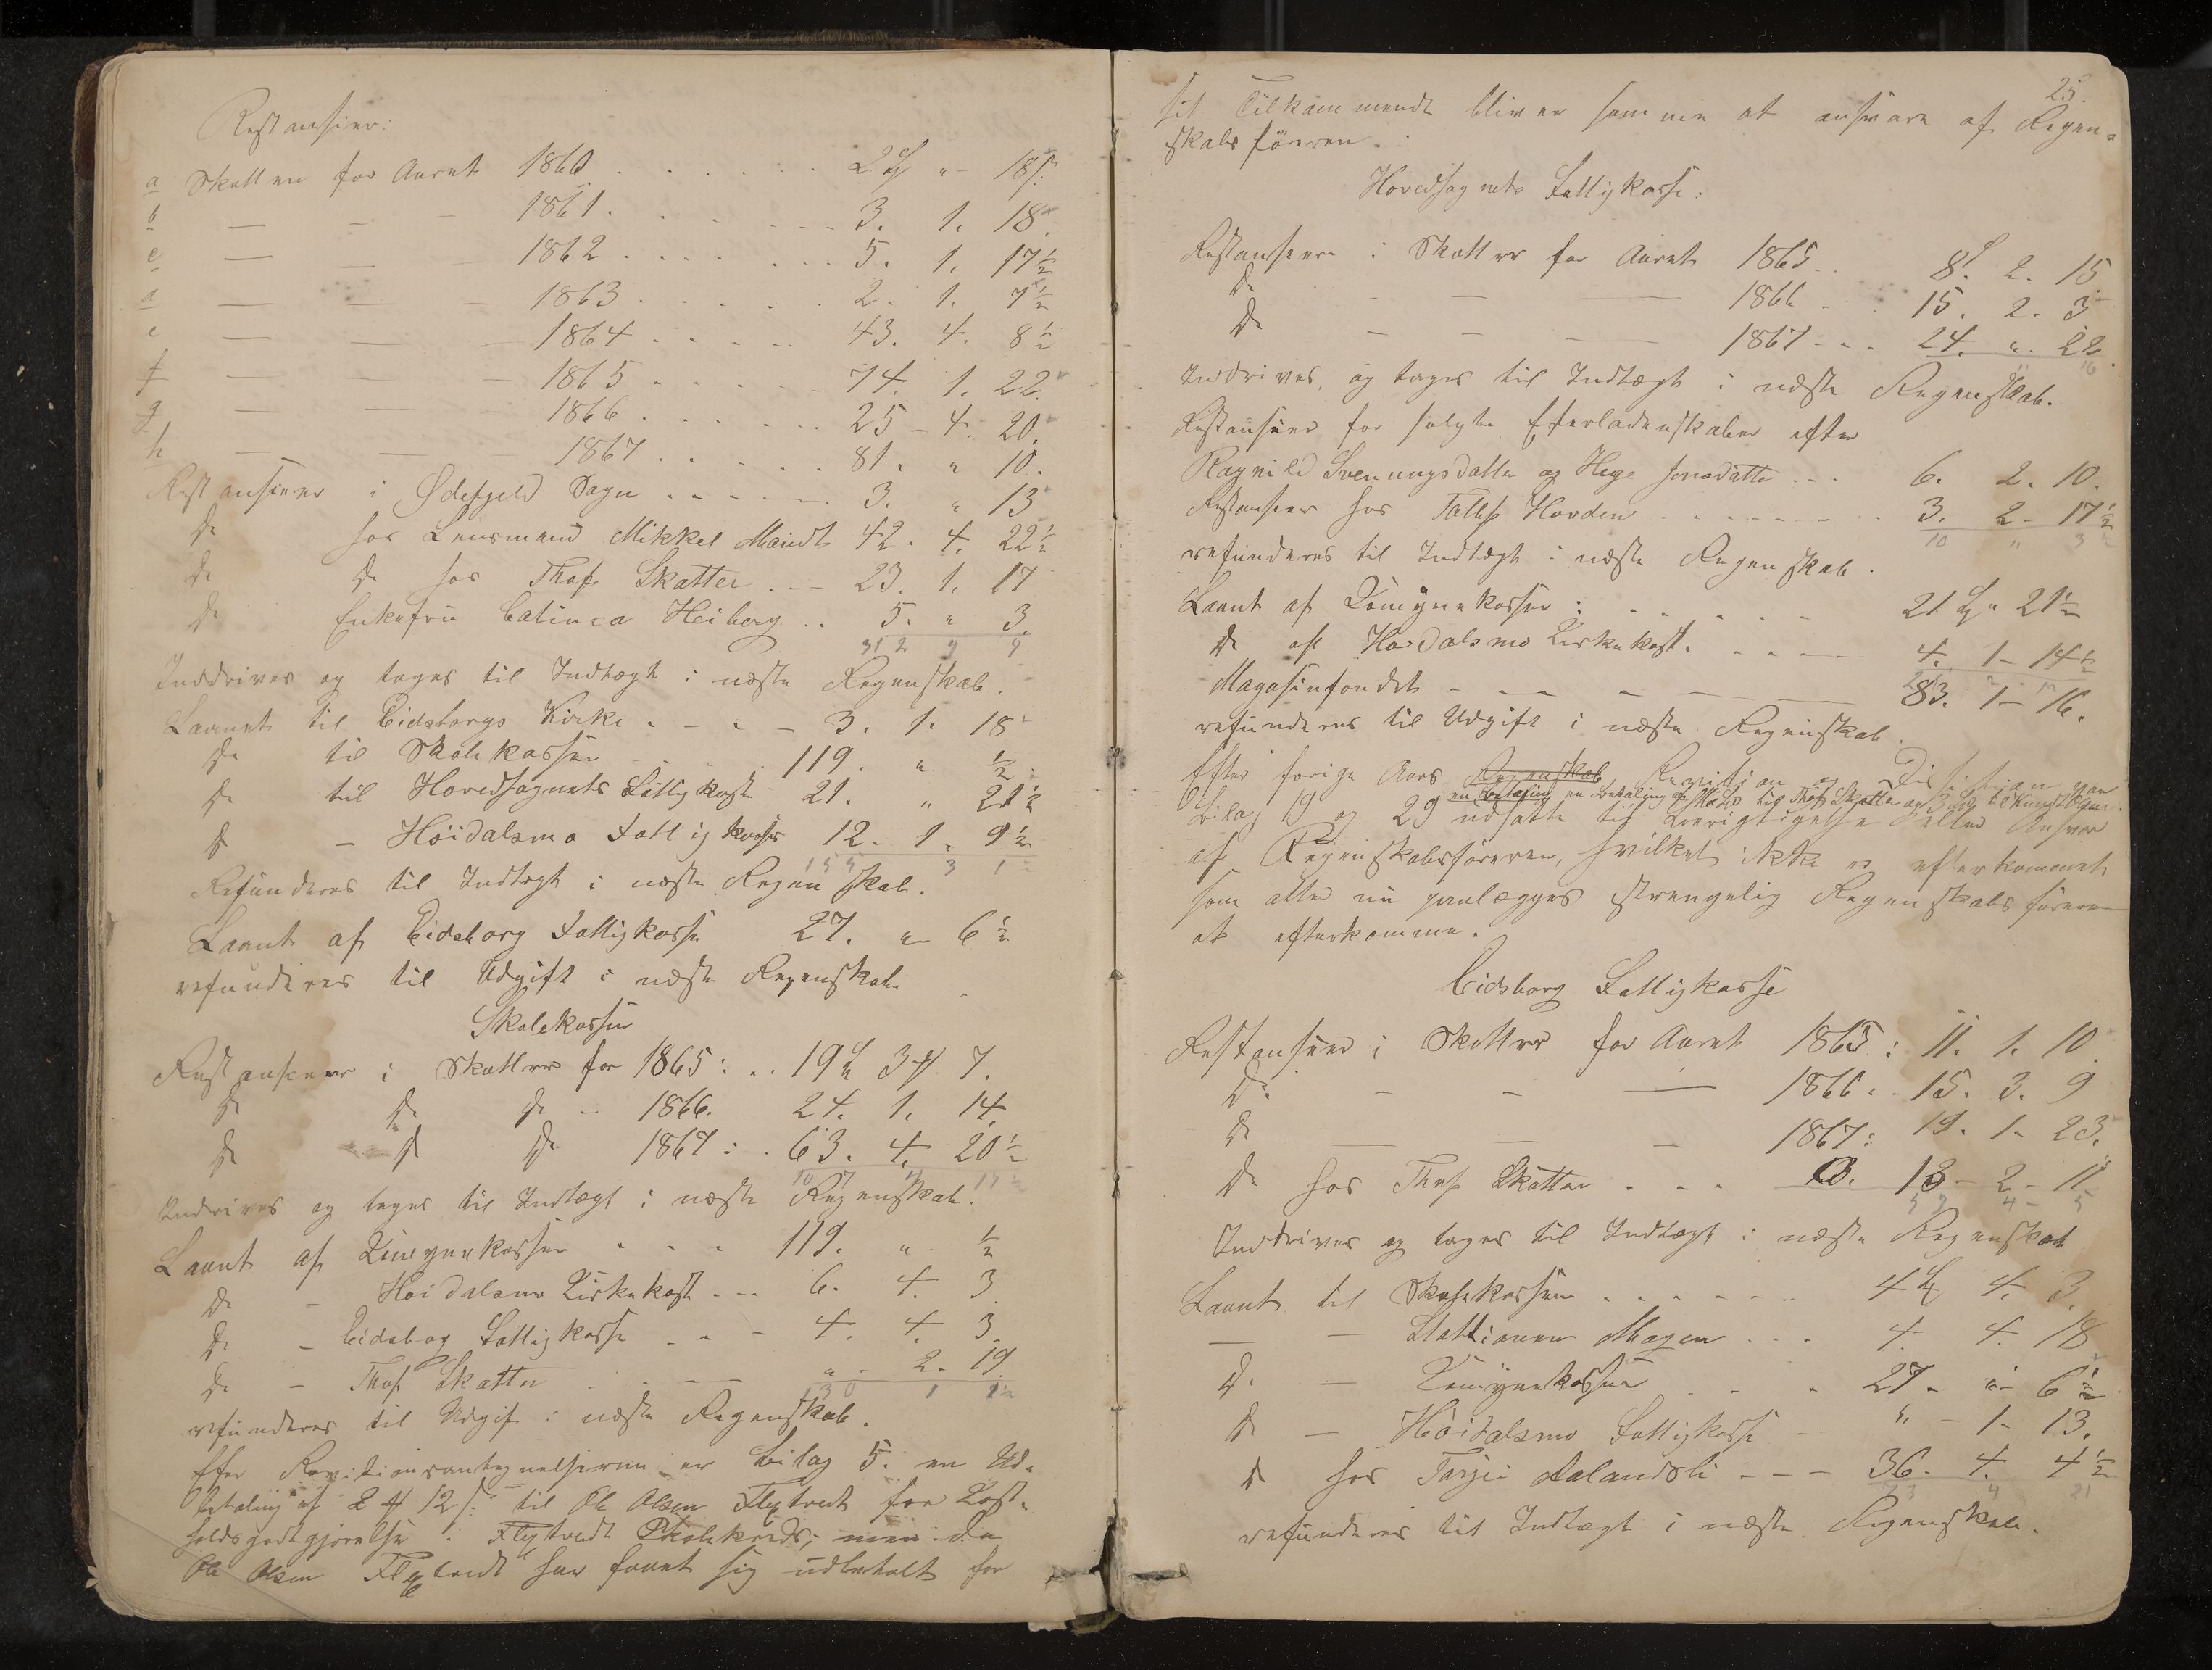 Restanser:
a Skatten for Aaret 1860 . . . . . . 2 " 18
b — — — 1861 . . . . . . 3. 1. 18.
c — — — 1862 . . . . . . 5. 1. 17½
d — — — 1863 . . . . . . 2. 1. 7½
e — — — 1864 . . . . . 43. 4. 8½
f — — — 1865 . . . . . 74. 1. 22.
g — — — 1866 . . . . . 25 - 4. 20.
h — — — 1867 . . . . . 81. " 10.
Restanser i Ødefjeld Sogn . . . . 3. " 13
Do hos Lensmand Mikkel Mandt 42. 4. 22½
Do Do hos Thof Skatter . . — 23. 1. 17
Do Enkefru Catinca Heiberg . . 5. " 3.
312 9
Inddrives og tages til Indtægt i næste Regenskab.
Laant til Eidsborgs Kirke . - . - 3. 1. 18
Do til Skolekassen 119. " ½.
Do til Hovedsognets Fattigkasse 21. " 21½
Do - Höidalsmo Fattigkasse 12. 1. 9½
154 3 1
Refunderes til Indtægt i næste Regenskab.
Laant af Eidsborg Fattigkasse 27. " 6½
refunderes til Udgift i næste Regenskab.
Skolekassen
Restanser i Skatter for 1865: . . 19 3 7.
Do Do Do - 1866. 24. 1. 14.
Do Do Do 1867: . 63. 4. 20½
107 4 17½
Inddrives og tages til Indtægt i næste Regenskab.
Laant af Komynekassen . . . 119. " ½
Do - Höidalsmo Kirkekasse . -- 6. 4. 3
Do - Eidsbog Fattigkasse . . - 4. 4. 3.
Do - Thof Skatter . — " - 2. 19.
130
refunderes til Udgift i næste Regenskab.
Efter Revisionsantegnelserne er Bilag 5. en Ud-
betaling af 2 12 til Ole Olsen Flextvedt for Kost-
holdsgodtgjörelse i Flextvedt Skolekreds; men da
Ole Olsen Flextvedt har faaet sig udbetalt for
25.
sit Tilkommende bliver samme at ansvare af Regen-
skabsföreren.
Hovedsognets Fattigkasse:
Restanser i Skatter for Aaret 1865 . . 8. 2. 15
Do - — — 1866 . 15. 2. 3
Do - - — 1867 . . . 24. ". 22.
16
Inddrives, og tages til Indtægt i næste Regenskab.
Restanser for solgte Efterladenskaber efter
Ragnild Svenungsdatter og Hege Jonsdatter . - . 6. 2. 10.
Restanser hos Tallef Hovden . . . . . . . 3. 2 - 17½
10 " 3
refunderes til Indtægt i næste Regenskab.
Laant af Komynekassen: . . . . . 21 " 21½
Do af Höidalsmo Kirkekasse. . . — 4. 1 - 14½
Magasinfondet - — — - — 83. 1 - 16.
refunderes til Udgift i næste Regenskab.
Efter forige Aars Regenskab Revision og Decision var
Bilag 19 og 29 udsatte til Berigtigelse eller Ansvar
af Regenskabsföreren, hvilket ikke er efterkommet
som altsaa nu paalægges strengelig Regenskabsföreren
at efterkomme.
Eidsborg Fattigkasse
Restanser i Skatter for Aaret 1865: 11. 1. 10.
Do - - — 1866. . 15. 3. 9
Do — — - 1867: 19. 1 - 23.
Do hos Thof Skatter . . . 13 - 2 - 11
4 - 5
Inddrives og tages til Indtægt i næste Regenskab
Laant til Skolekassen . . . . . . 4 4. 3.
— - Stattionen Mogen . . . 4. 4. 18
Do - Komynekassen . . 27. " 6½
Do - Höidalsmo Fattigkasse - " - 1 - 13.
Do hos Tarjei Aalandsli - - - 36. 4. 4½
73 4 21
refunderes til Indtægt i næste Regenskab.